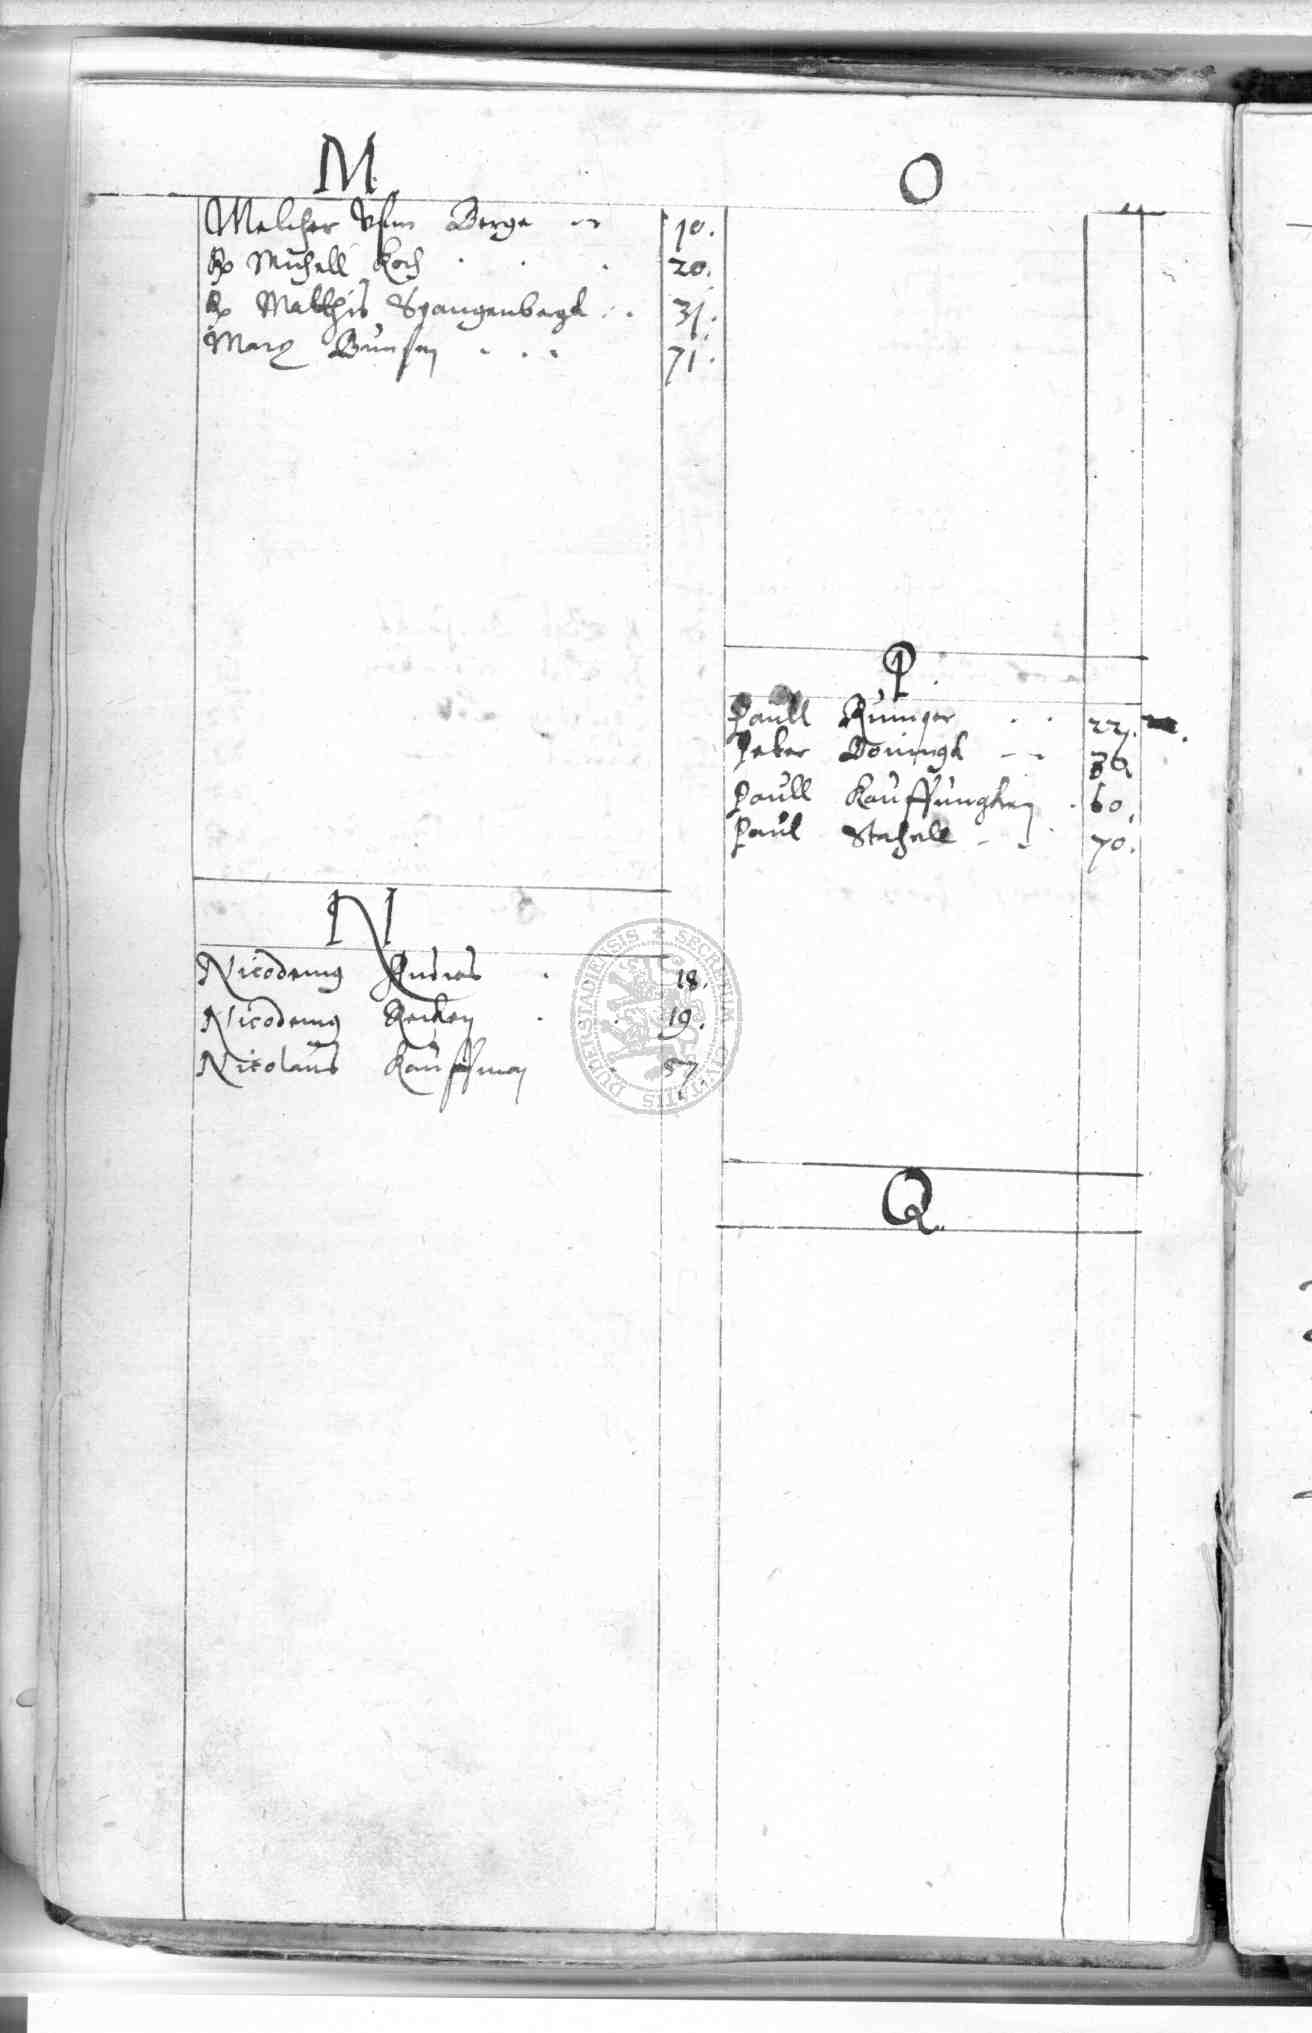 M.
Melcher Vfm Berge 10.
Michell Koch . . . 20.
Matthis Spangenbergk . . 31.
Marx Bunsen . . . 71.
N
Nicodemus Andres . 18.
Nicodemus Recken . . 19.
Nicolaus Kauffman . 57.
O
P.
Paull Rüniger . . 22.
Peter Döningk 36
Paull Kauffunghen . 60.
Paul Stahell 70.
Q.
SECRETUM CIVITATIS DUDERSTADIESIS